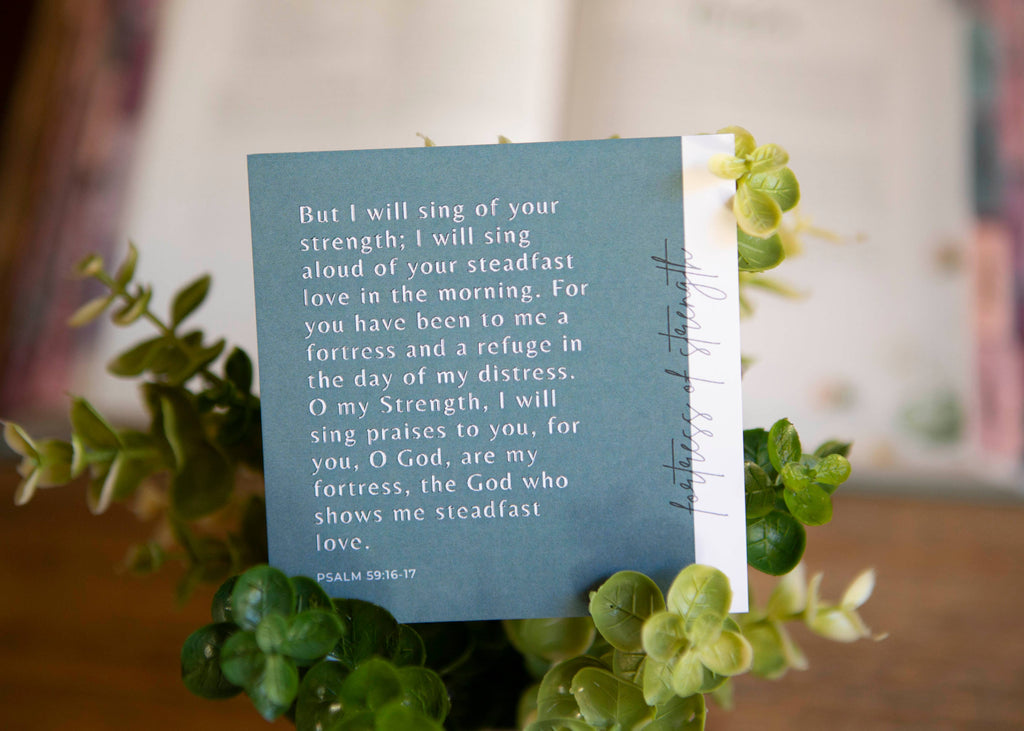 But I will sing of your
strength; I will sing
aloud of your steadfast
love in the morning. For
you have been to me a
fortress and a refuge in
the day of my distress.
O my Strength, I will
sing praises to you, for
you, O God, are my
fortress, the God who
shows me steadfast
love.
PSALM 59:16-17
fortress of strength